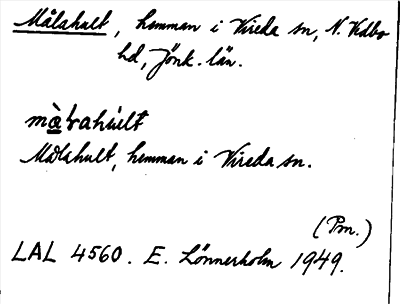 Målahult, hemman i Vireda sn, N. Vedbo
hd, Jönk. län.
Målahult, hemman i Vireda sn.
(Pm.)
LAL 4560. E. Lönnerholm 1949.